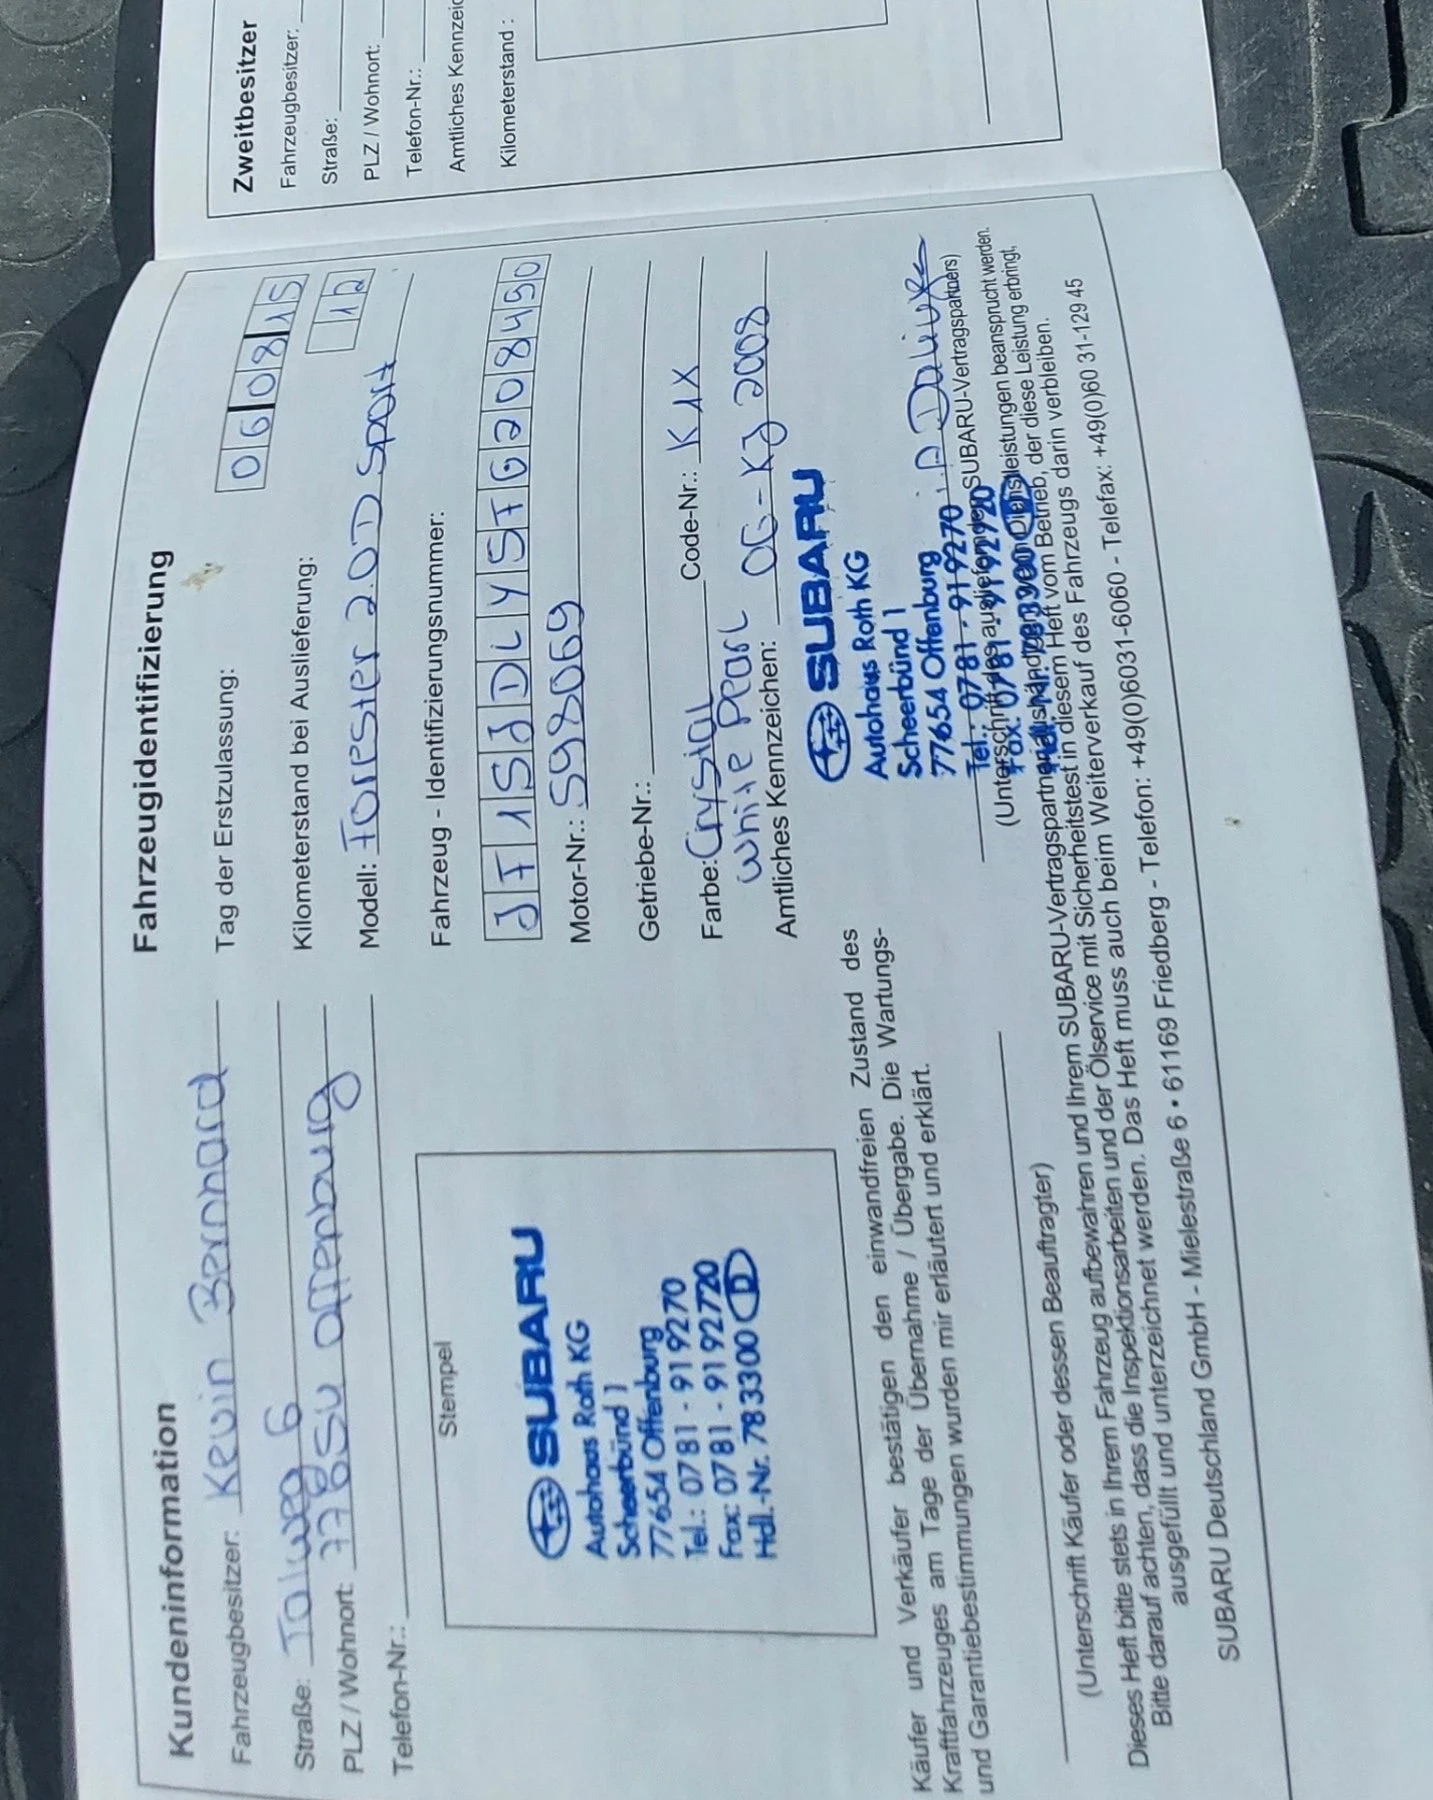 Kundeninformation
Fahrzeugbesitzer: Kevin Bernhard
Straße: Talweg 6
PLZ / Wohnort: Offenburg
Telefon-Nr.:
Stempel
SUBARU
Autohaus Roth KG
Scheerbünd 1
77654 Offenburg
Tel.: 0781 - 91 9270
Fax: 0781 - 91 92720
Hdl.-Nr. 783300 D
Käufer und Verkäufer bestätigen den einwandfreien Zustand des
Kraftfahrzeuges am Tage der Übernahme / Übergabe. Die Wartungs-
und Garantiebestimmungen wurden mir erläutert und erklärt.
(Unterschrift Käufer oder dessen Beauftragter)
Fahrzeugidentifizierung
Tag der Erstzulassung: 06 08 15
Kilometerstand bei Auslieferung: 12
Modell: Forester 2.0D Sport
Fahrzeug - Identifizierungsnummer:
JF1SJDLY5FG208490
Motor-Nr.: S98069
Getriebe-Nr.:
Farbe: Crystal Code-Nr.: K1X
White Pearl
Amtliches Kennzeichen: OG-KJ 2008
SUBARU
Autohaus Roth KG
Scheerbünd 1
77654 Offenburg
Tel.: 0781 - 91 9270
Fax: 0781 - 91 92720
Hdl.-Nr. 783300 D
(Unterschrift des ausliefernden SUBARU-Vertragspartners)
Dieses Heft bitte stets in Ihrem Fahrzeug aufbewahren und Ihrem SUBARU-Vertragspartner aushändigen, wenn Dienstleistungen beansprucht werden.
Bitte darauf achten, dass die Inspektionsarbeiten und der Ölservice mit Sicherheitstest in diesem Heft vom Betrieb, der diese Leistung erbringt,
ausgefüllt und unterzeichnet werden. Das Heft muss auch beim Weiterverkauf des Fahrzeugs darin verbleiben.
SUBARU Deutschland GmbH - Mielestraße 6 • 61169 Friedberg - Telefon: +49(0)6031-6060 - Telefax: +49(0)60 31-129 45
Zweitbesitzer
Fahrzeugbesitzer:
Straße:
PLZ / Wohnort:
Telefon-Nr.:
Amtliches Kennzeic
Kilometerstand :